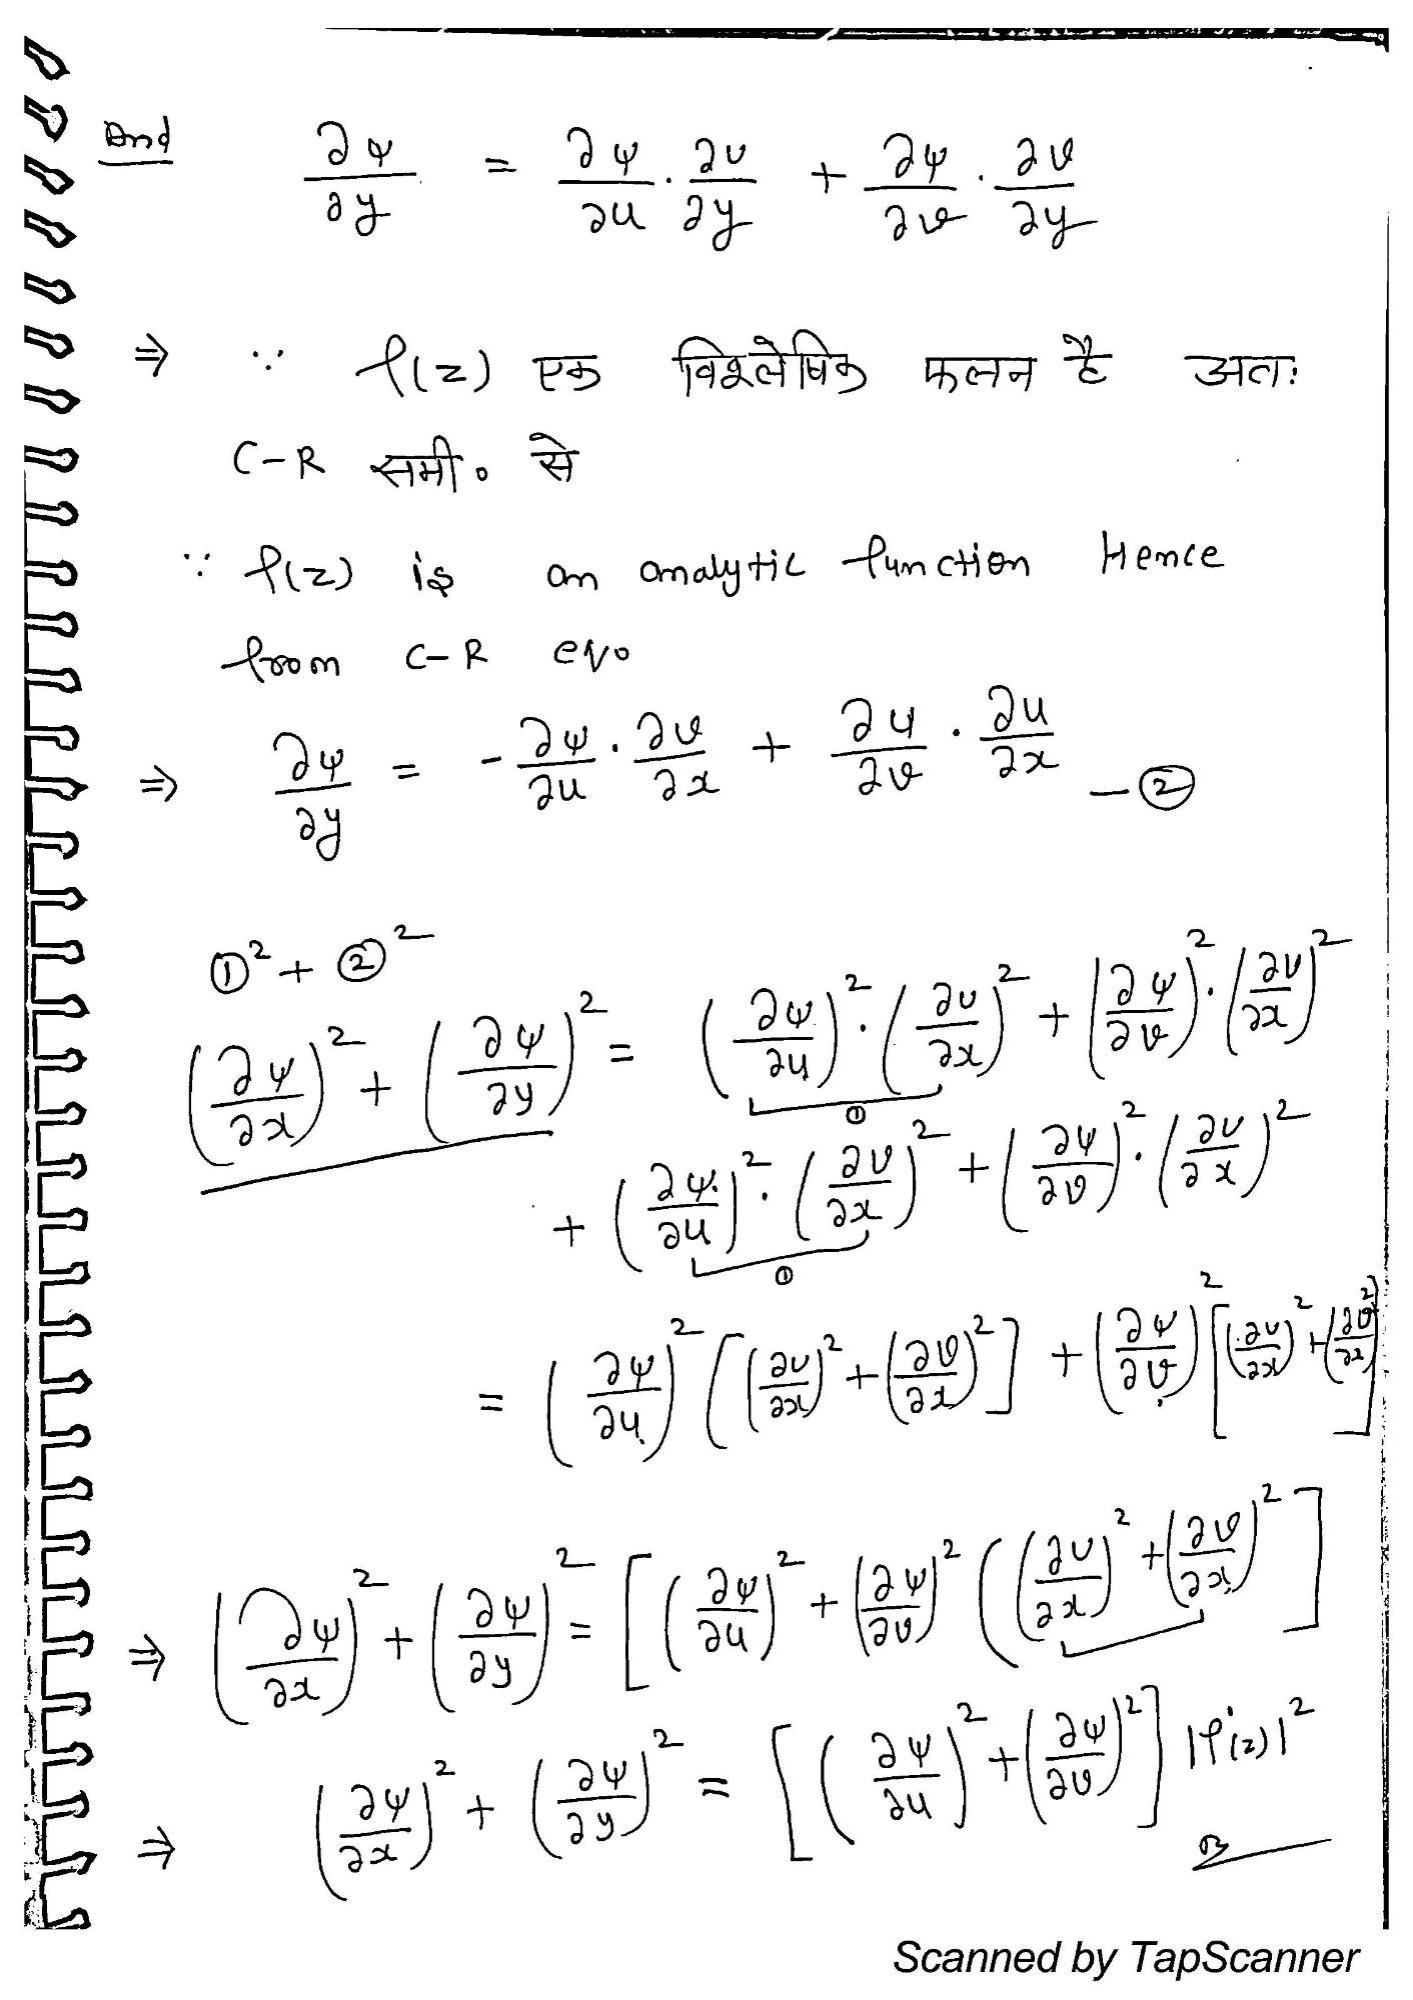 And ∂ψ/∂y = ∂ψ/∂u · ∂u/∂y + ∂ψ/∂v · ∂v/∂y
⇒ ∵ f(z) एक विश्लेषिक फलन है अतः
C-R समी० से
∵ f(z) is an analytic function Hence
from C-R eqo
⇒ ∂ψ/∂y = -∂ψ/∂u · ∂v/∂x + ∂ψ/∂v · ∂u/∂x — ②
①² + ②²
(∂ψ/∂x)² + (∂ψ/∂y)² = (∂ψ/∂u)² · (∂u/∂x)² + (∂ψ/∂v)² · (∂v/∂x)²
①
+ (∂ψ/∂u)² · (∂v/∂x)² + (∂ψ/∂v)² · (∂u/∂x)²
①
= (∂ψ/∂u)² [(∂u/∂x)² + (∂v/∂x)²] + (∂ψ/∂v)² [(∂u/∂x)² + (∂v/∂x)²]
⇒ (∂ψ/∂x)² + (∂ψ/∂y)² = [(∂ψ/∂u)² + (∂ψ/∂v)² ((∂u/∂x)² + (∂v/∂x)²]
⇒ (∂ψ/∂x)² + (∂ψ/∂y)² = [(∂ψ/∂u)² + (∂ψ/∂v)²] |f'(z)|²
Scanned by TapScanner